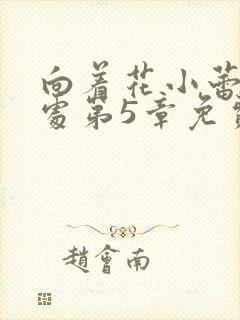 向着花小蕾
处第5章免
趙會南